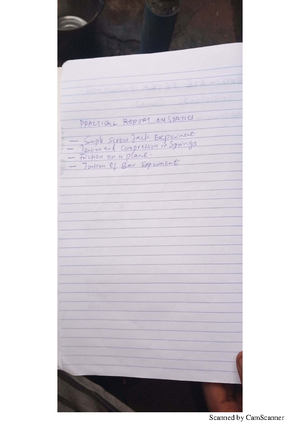 PRACTICAL REPORT ON STATICS
- Simple Screw Jack Experiment
- Tension and Compression in Springs
- Friction on a plane
- Torsion of Bar Experiment
Scanned by CamScanner